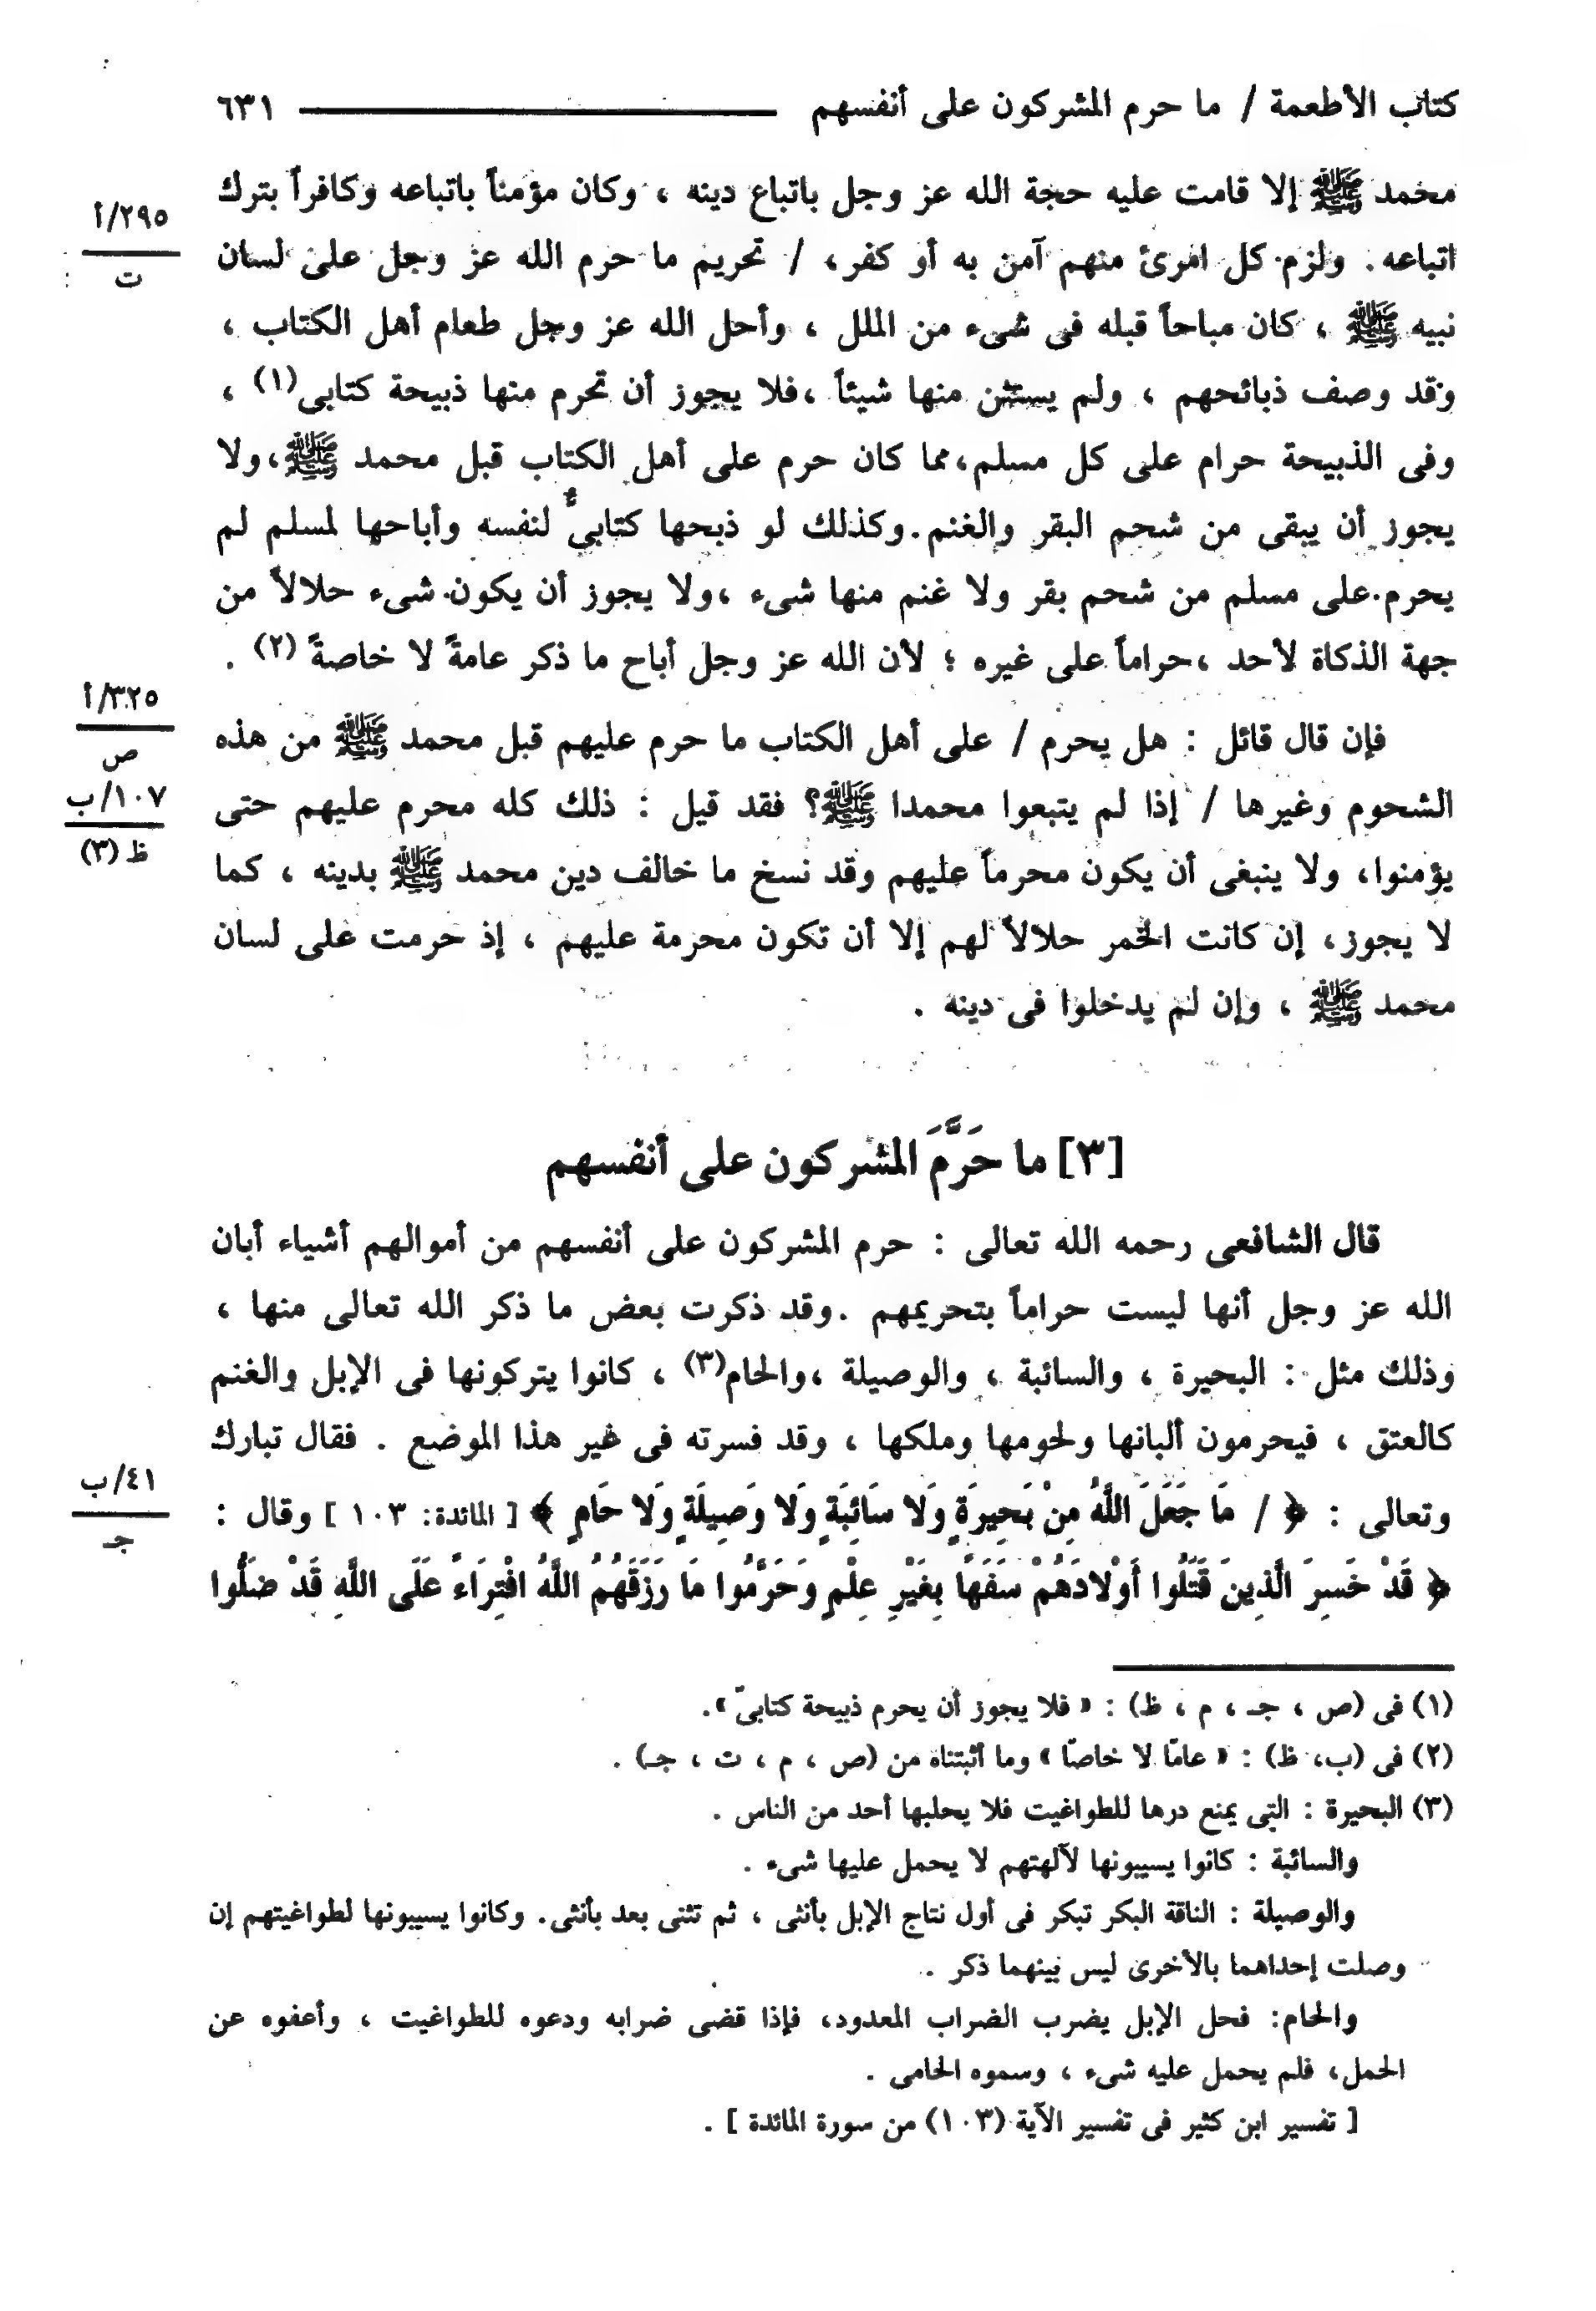 كتاب الأطعمة / ما حرم المشركون على أنفسهم ٦٣١
محمد ﷺ إلا قامت عليه حجة الله عز وجل باتباع دينه ، وكان مؤمناً باتباعه وكافراً بترك
٢٩٥/أ
ت
اتباعه. ولزم كل امرئ منهم آمن به أو كفر، / تحريم ما حرم الله عز وجل على لسان
نبيه ﷺ ، كان مباحاً قبله فى شىء من الملل ، وأحل الله عز وجل طعام أهل الكتاب ،
وقد وصف ذبائحهم ، ولم يستثن منها شيئاً ،فلا يجوز أن تحرم منها ذبيحة كتابى(١) ،
وفى الذبيحة حرام على كل مسلم،مما كان حرم على أهل الكتاب قبل محمد ﷺ،ولا
يجوز أن يبقى من شحم البقر والغنم.وكذلك لو ذبحها كتابىٌّ لنفسه وأباحها لمسلم لم
يحرم على مسلم من شحم بقر ولا غنم منها شىء ،ولا يجوز أن يكون شىء حلالاً من
جهة الذكاة لأحد ،حراماً على غيره ؛ لأن الله عز وجل أباح ما ذكر عامةً لا خاصةً (٢) .
٣٢٥/أ
ص
فإن قال قائل : هل يحرم / على أهل الكتاب ما حرم عليهم قبل محمد ﷺ من هذه
١٠٧/ب
ظ (٣)
الشحوم وغيرها / إذا لم يتبعوا محمدا ﷺ؟ فقد قيل : ذلك كله محرم عليهم حتى
يؤمنوا، ولا ينبغى أن يكون محرماً عليهم وقد نسخ ما خالف دين محمد ﷺ بدينه ، كما
لا يجوز، إن كانت الخمر حلالاً لهم إلا أن تكون محرمة عليهم ، إذ حرمت على لسان
محمد ﷺ ، وإن لم يدخلوا فى دينه .
[٣] ما حَرَّمَ المشركون على أنفسهم
قال الشافعى رحمه الله تعالى : حرم المشركون على أنفسهم من أموالهم أشياء أبان
الله عز وجل أنها ليست حراماً بتحريمهم .وقد ذكرت بعض ما ذكر الله تعالى منها ،
وذلك مثل : البحيرة ، والسائبة ، والوصيلة ،والحام(٣) ، كانوا يتركونها فى الإبل والغنم
كالعتق ، فيحرمون ألبانها ولحومها وملكها ، وقد فسرته فى غير هذا الموضع . فقال تبارك
٤١/ب
جـ
وتعالى : ﴿ / مَا جَعَلَ اللَّهُ مِنْ بَحِيرَةٍ وَلا سَائِبَةٍ وَلا وَصِيلَةٍ وَلا حَامٍ ﴾ [ المائدة: ١٠٣ ] وقال :
﴿ قَدْ خَسِرَ الَّذِينَ قَتَلُوا أَوْلادَهُمْ سَفَهًا بِغَيْرِ عِلْمٍ وَحَرَّمُوا مَا رَزَقَهُمُ اللَّهُ افْتِرَاءً عَلَى اللَّهِ قَدْ ضَلُّوا
(١) فى (ص ، جـ ، م ، ظ) : « فلا يجوز أن يحرم ذبيحة كتابىّ ».
(٢) فى (ب، ظ) : « عامّا لا خاصّا » وما أثبتناه من (ص ، م ، ت ، جـ) .
(٣) البحيرة : التى يمنع درها للطواغيت فلا يحلبها أحد من الناس .
والسائبة : كانوا يسيبونها لآلهتهم لا يحمل عليها شىء .
والوصيلة : الناقة البكر تبكر فى أول نتاج الإبل بأنثى ، ثم تثنى بعد بأنثى. وكانوا يسيبونها لطواغيتهم إن
وصلت إحداهما بالأخرى ليس بينهما ذكر .
والحام: فحل الإبل يضرب الضراب المعدود، فإذا قضى ضرابه ودعوه للطواغيت ، وأعفوه عن
الحمل، فلم يحمل عليه شىء ، وسموه الحامى .
[ تفسير ابن كثير فى تفسير الآية (١٠٣) من سورة المائدة ] .